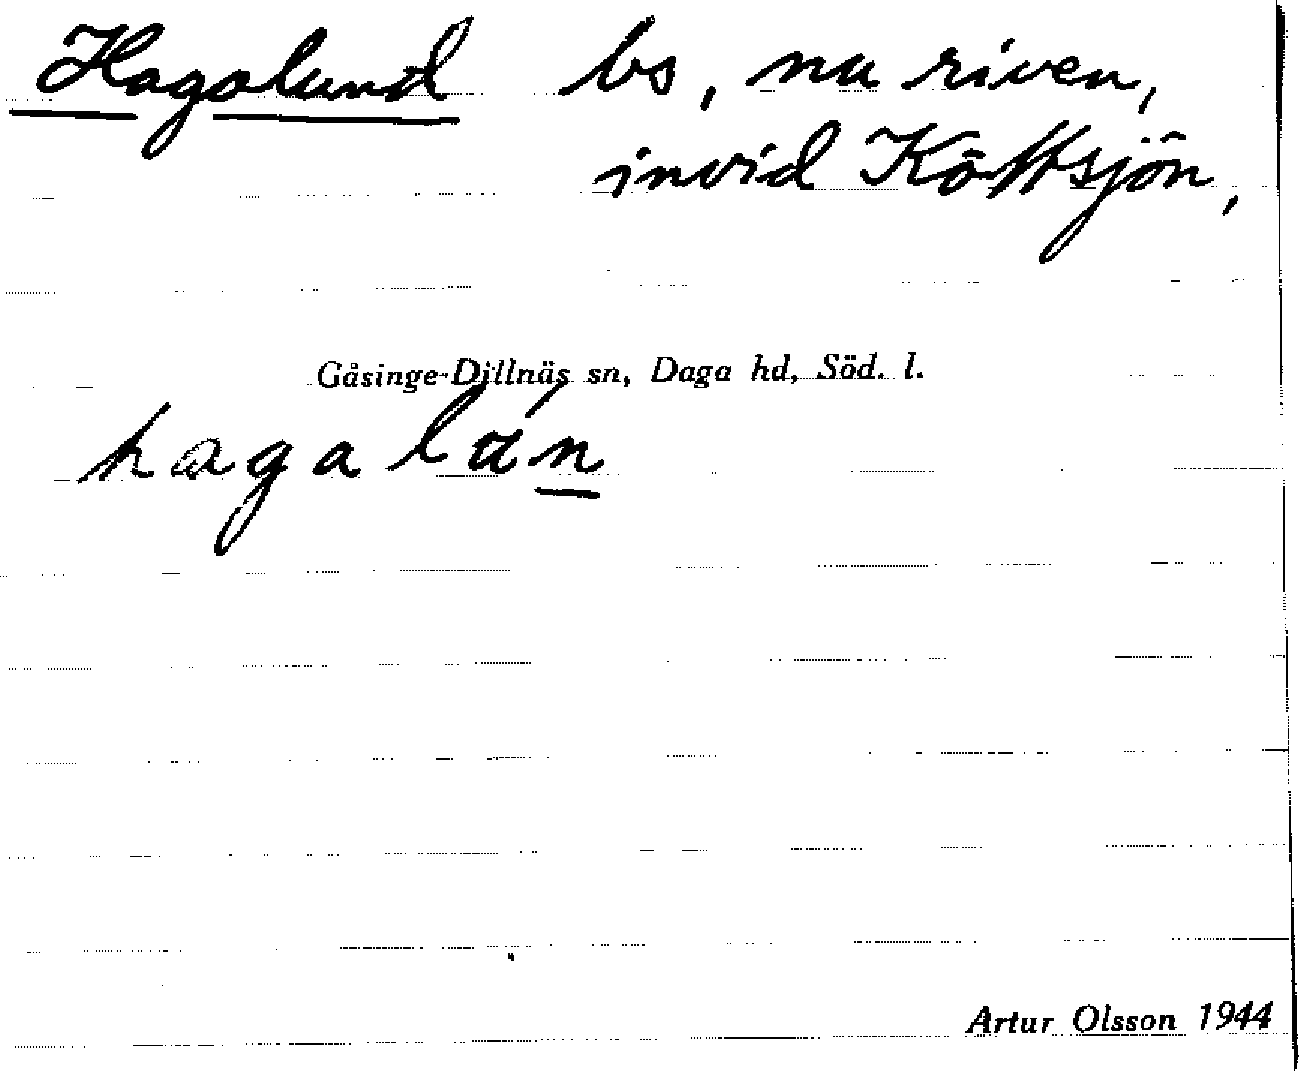 Hagalund bs, nu riven,
invid Köttsjön,
Gåsinge-Dillnäs sn, Daga hd, Söd. l.
hagalán
Artur Olsson 1944